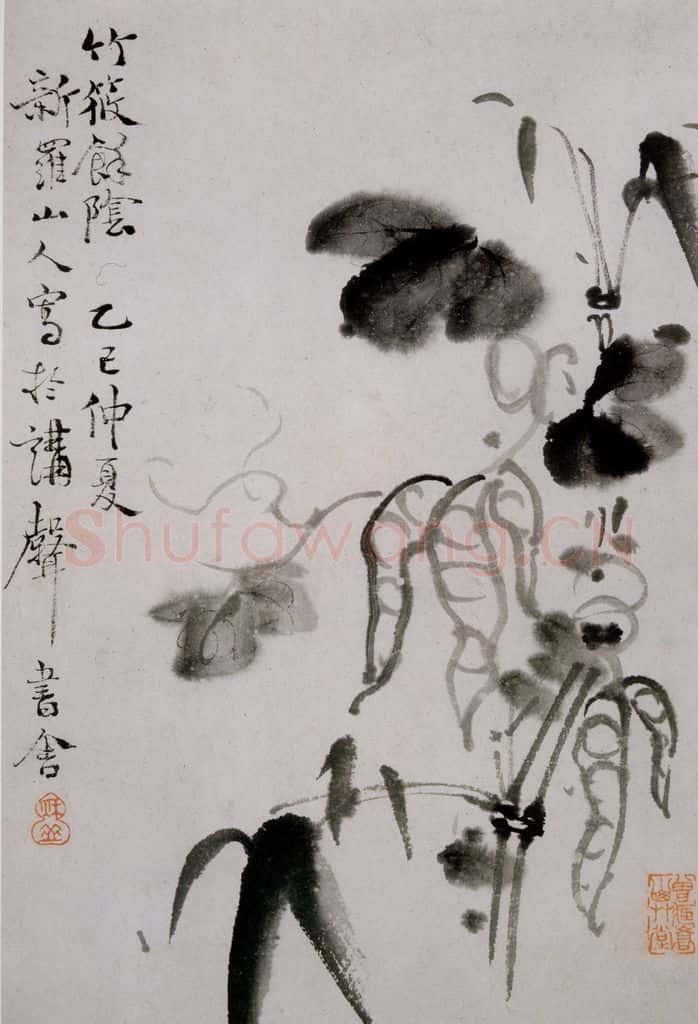 竹筱餘陰 乙巳仲夏
新羅山人寫於講聲書舍
Shufawang.CN